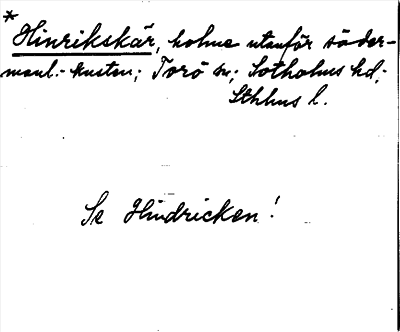 *
Hinrikskär, holme utanför söder-
manl.-kusten; Torö sn; Sotholms hd;
Sthlms l.
Se Hindricken!